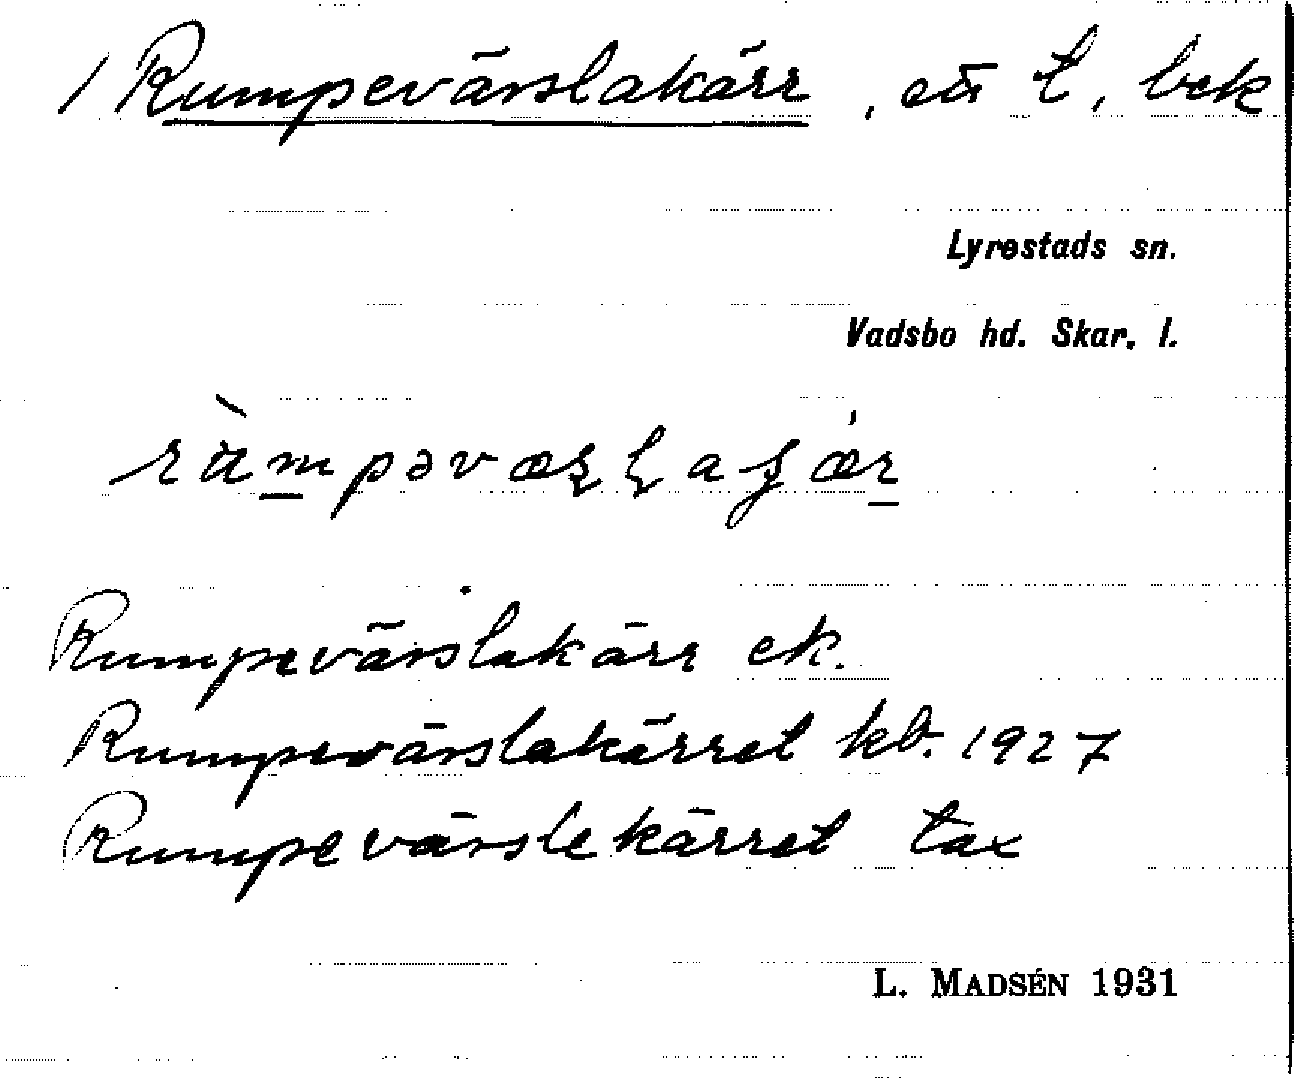 1 Rumpevärslakärr, ett t, bek
Lyrestads sn.
Vadsbo hd. Skar. l.
Rumpevärslakärr ek.
Rumpevärslakärret kb. 1927
Rumpevärslekärret tax
L. MADSÉN 1931